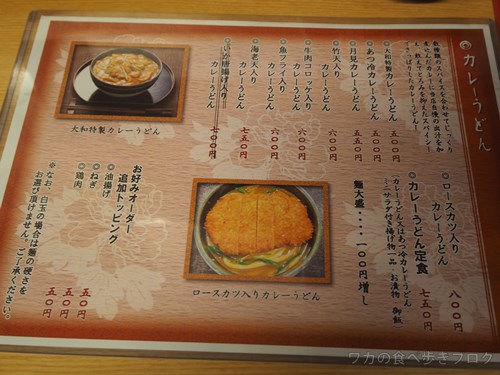 カレーうどん
数種類のスパイスを合わせてじっくり
煮込んだカレーに当店自慢の出汁を加
え、
さっぱりとしたカレーうどん
◎大和特製カレーうどん 五〇〇円
◎あつ冷カレーうどん 五五〇円
◎月見カレーうどん 五五〇円
◎竹天入り
カレーうどん 六〇〇円
◎牛肉コロッケ入り
カレーうどん 六五〇円
◎魚フライ入り
カレーうどん
◎海老天入り
カレーうどん 七五〇円
◎いか唐揚げ入り
カレーうどん 七〇〇円
大和特製カレーうどん
◎ロースカツ入り
カレーうどん 八〇〇円
◎カレーうどん定食 七五〇円
(カレーうどん又はあつ冷カレーうどん
ミニサラダ付き揚げ物一品・お漬物 御飯
麺大盛・・・・一〇〇円増し
ロースカツ入りカレーうどん
お好みオーダー
追加トッピング
◎油揚げ 五〇円
◎ねぎ 五〇円
◎鶏肉 五〇円
※なお、白玉の場合は麺の硬さを
お選び頂けません。ご了承ください。
ワカの食べ歩きブログ